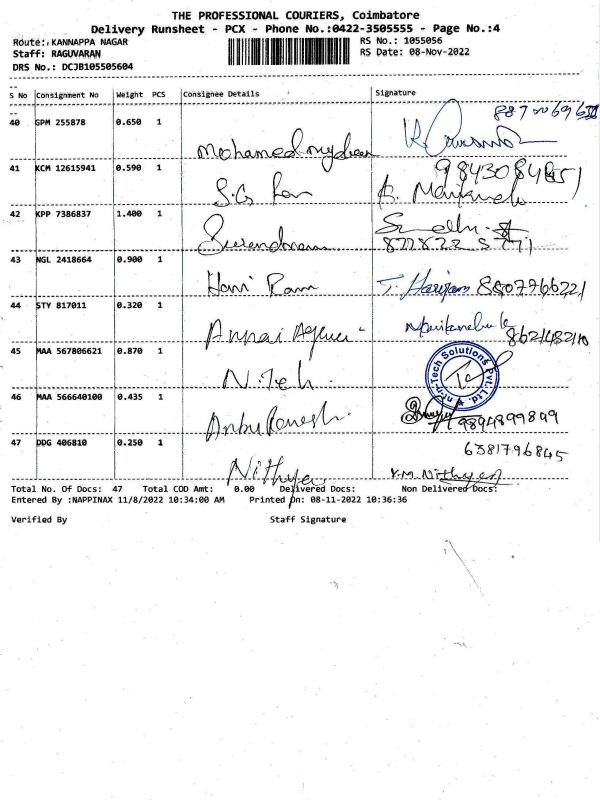 THE PROFESSIONAL COURIERS, Coimbatore
Delivery Runsheet - PCX - Phone No.:0422-3505555 - Page No.:4
Route: KANNAPPA NAGAR RS No.: 1055056
Staff: RAGUVARAN RS Date: 08-Nov-2022
DRS No.: DCJB105505604
S No Consignment No Weight PCS Consignee Details Signature
40 GPM 255878 0.650 1
Mohamed
41 KCM 12615941 0.590 1 9843084651
S.G.
42 KPP 7386837 1.400 1
43 NGL 2418664 0.900 1
Hari Ram T. Hariram 8807766221
44 STY 817011 0.320 1
Annai
45 MAA 567806621 0.870 1 Tech Solutions Pvt. Ltd.
N.Teh.
46 MAA 566640100 0.435 1
9894899899
47 DDG 406810 0.250 1 6381796845
Nithya Y.M. Nithya
Total No. Of Docs: 47 Total COD Amt: 0.00 Delivered Docs: Non Delivered Docs:
Entered By :NAPPINAX 11/8/2022 10:34:00 AM Printed On: 08-11-2022 10:36:36
Verified By Staff Signature